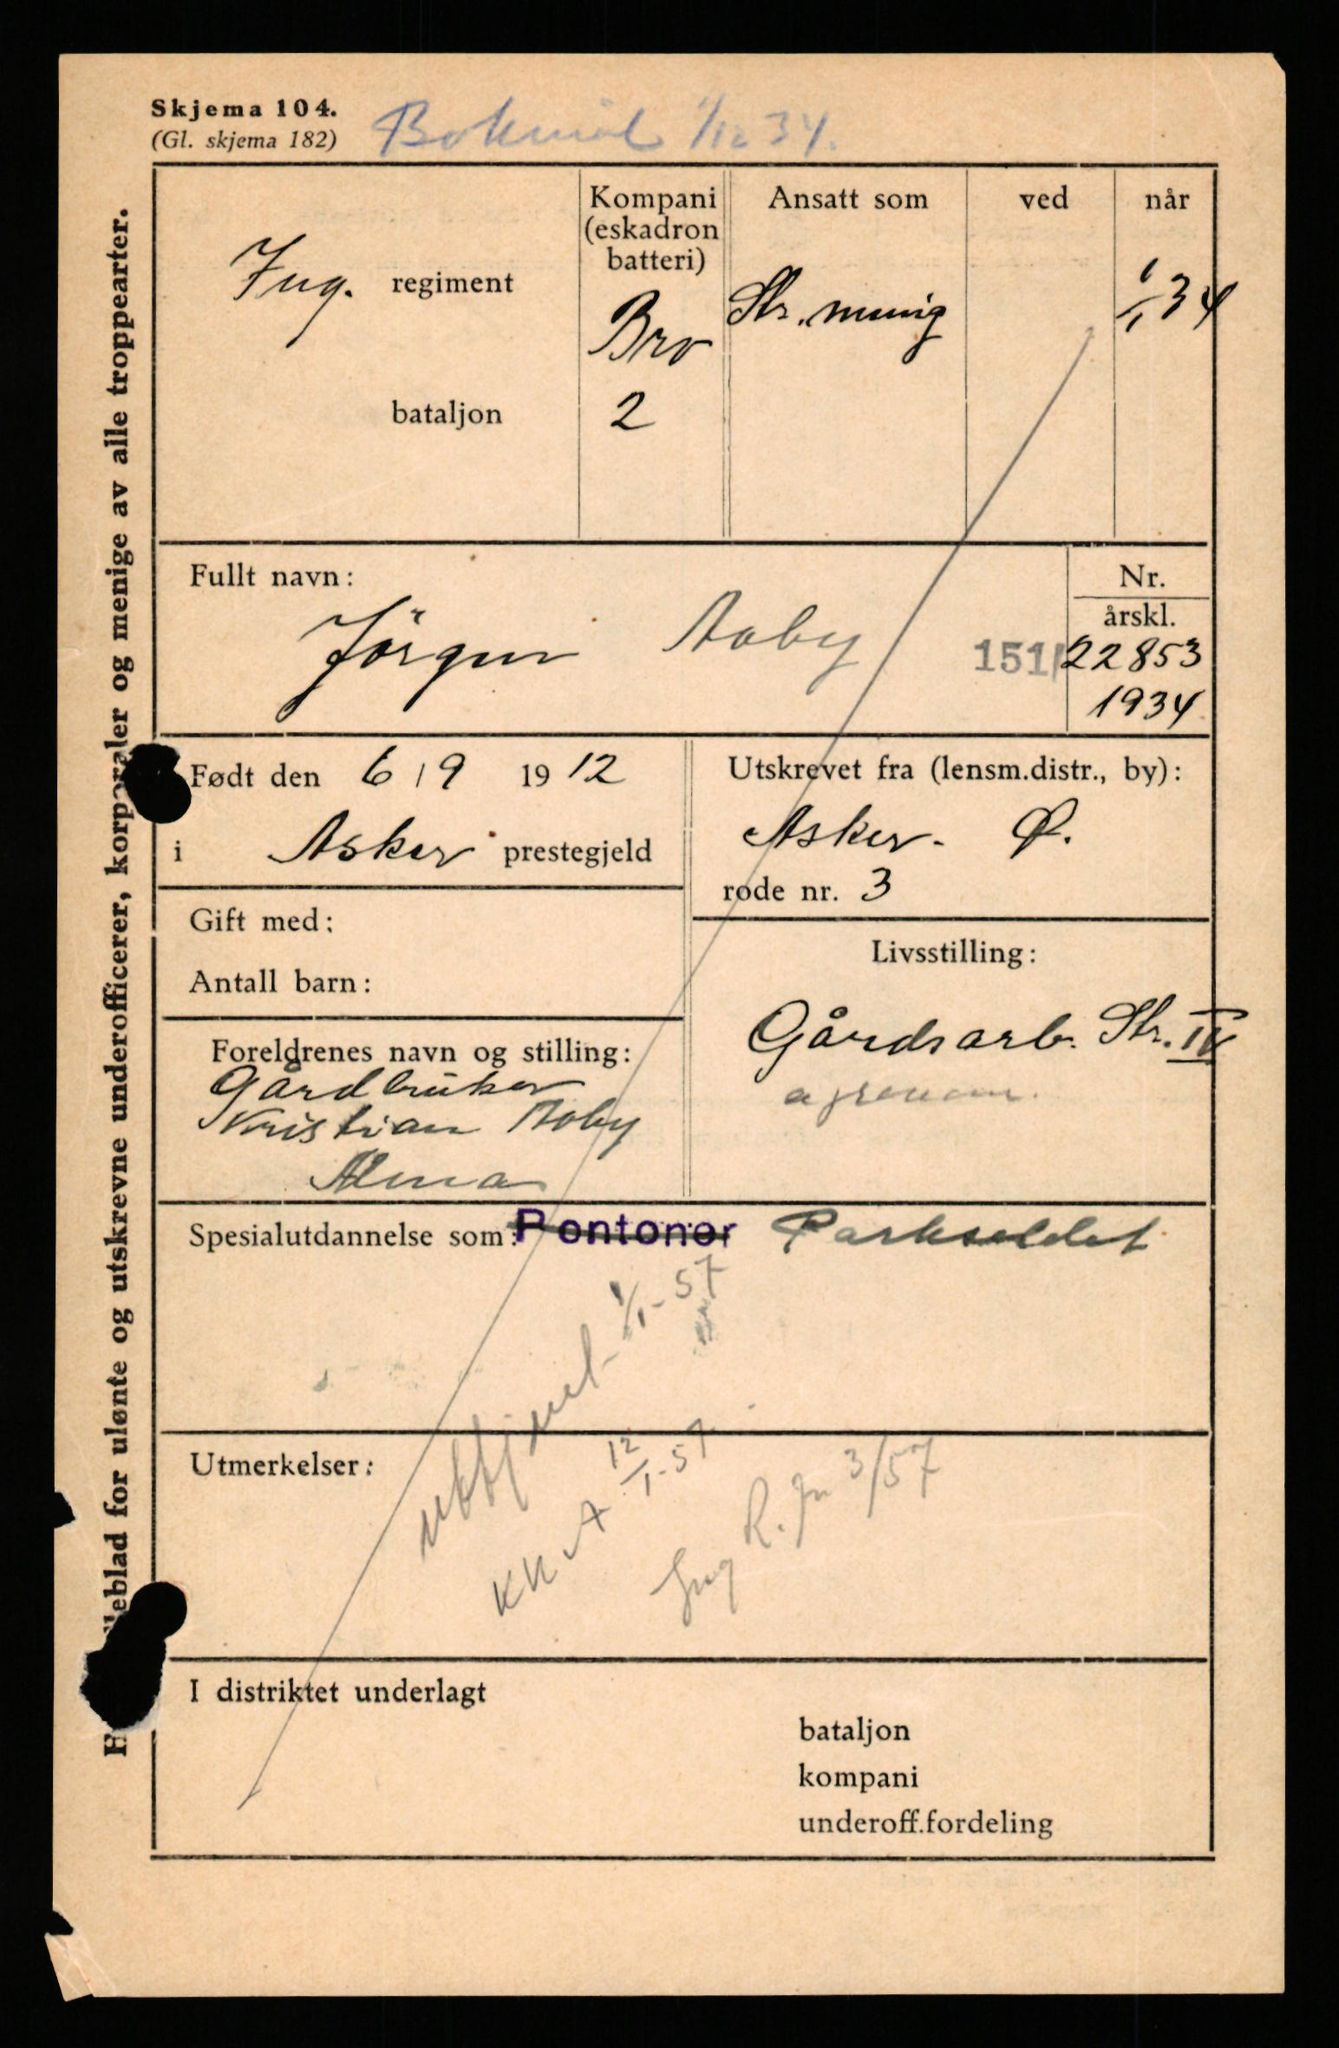 Skjema 104.
(Gl. skjema 182)
Bokmål 1/12 34.
Kompani (eskadron batteri)
Ansatt som
ved
når
Ing. regiment
Bro
Str. menig
1/1 34
bataljon
2
Fullt navn:
Jörgen Aaby
Nr.
årskl.
151/
22853
1934
Født den 6/9 1912
i Asker prestegjeld
Utskrevet fra (lensm.distr., by):
Asker. Ø.
rode nr. 3
Gift med:
Antall barn:
Livsstilling:
Gårdsarb. Str. IV
agronom.
Foreldrenes navn og stilling:
Gårdbruker
Kristian Aaby
Alma
Spesialutdannelse som:
Pontoner
Parksoldat
uttjent 1/1-57
Utmerkelser:
KKA 12/1-57
Ing R. Jn 3/57
I distriktet underlagt
bataljon
kompani
underoff.fordeling
eblad for ulønte og utskrevne underofficerer, korporaler og menige av alle troppearter.